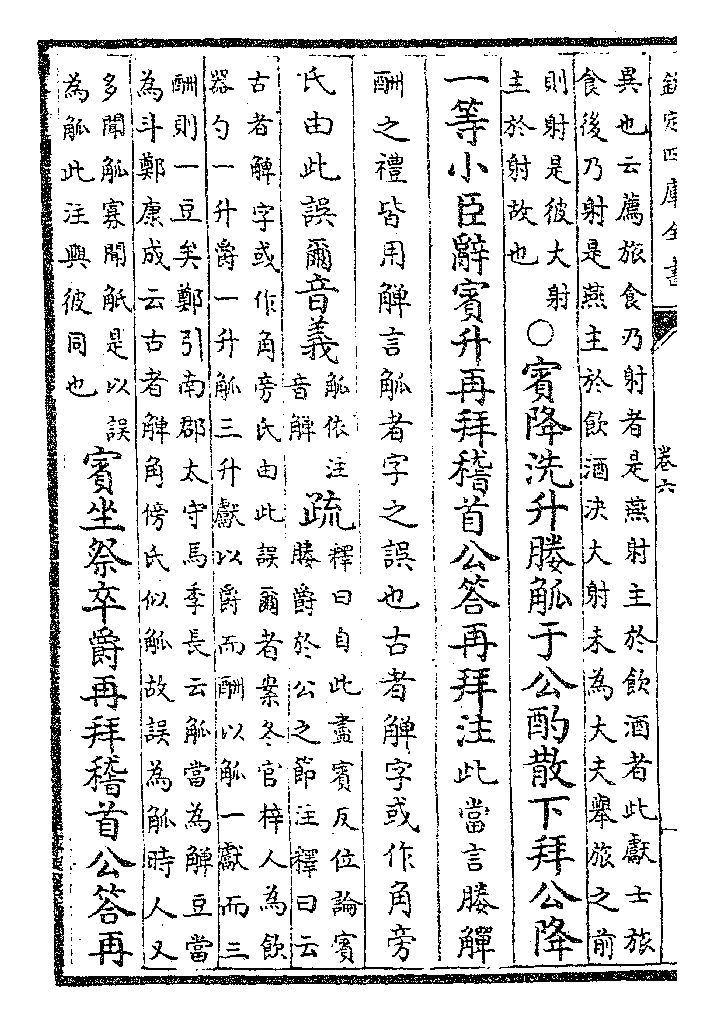 欽定四庫全書
卷六
異也云薦旅食乃射者是燕射主於飲酒者此獻士旅
食後乃射是燕主於飲酒決大射未為大夫舉旅之前
則射是彼大射
主於射故也
○賓降洗升媵觚于公酌散下拜公降
一等小臣辭賓升再拜稽首公答再拜注此當言媵觶
酬之禮皆用觶言觚者字之誤也古者觶字或作角旁
氏由此誤爾音義
觚依注
音觶
疏
釋曰自此盡賓反位論賓
媵爵於公之節注釋曰云
古者觶字或作角旁氏由此誤爾者案冬官梓人為飲
器勺一升爵一升觚三升獻以爵而酬以觚一獻而三
酬則一豆矣鄭引南郡太守馬季長云觚當為觶豆當
為斗鄭康成云古者觶角傍氏似觚故誤為觚時人又
多聞觚寡聞觝是以誤
為觚此注與彼同也
賓坐祭卒爵再拜稽首公答再